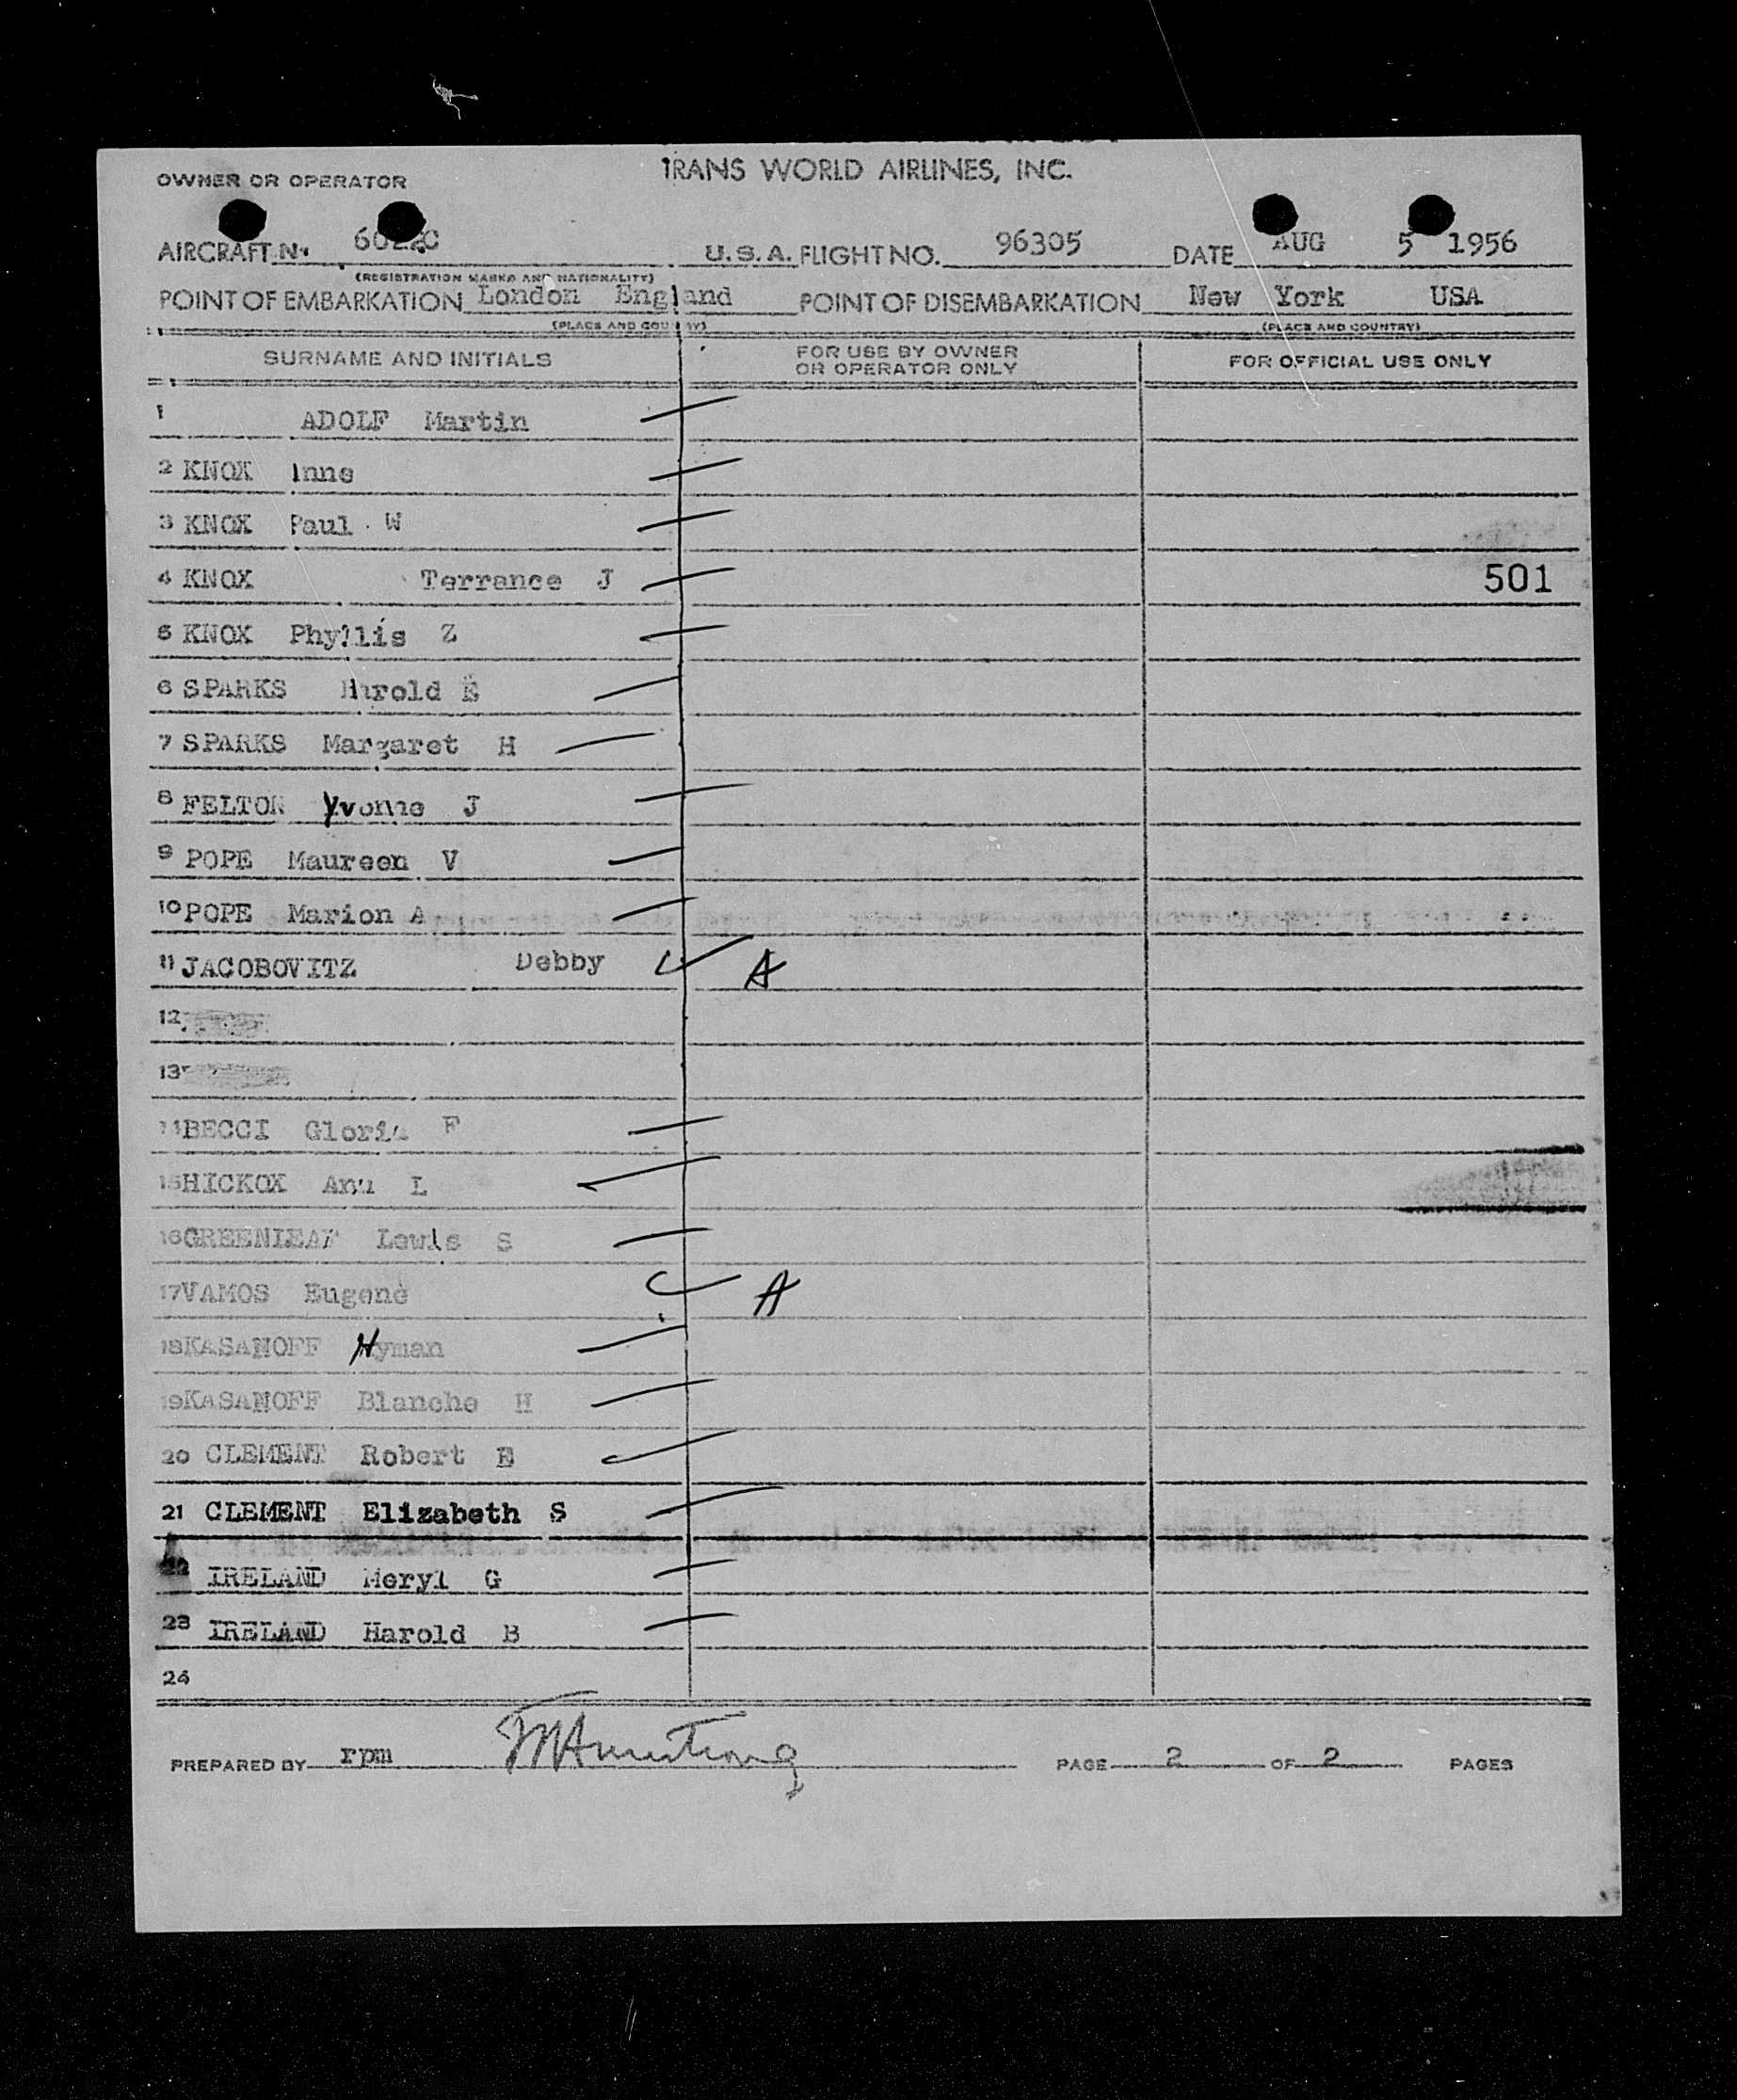 TRANS WORLD AIRLINES, INC.
OWNER OR OPERATOR
AIRCRAFT N. U.S.A. FLIGHT NO. 96305 DATE AUG 5 1956
(REGISTRATION MARKS AND NATIONALITY)
POINT OF EMBARKATION London England POINT OF DISEMBARKATION New York USA
(PLACE AND COUNTRY) (PLACE AND COUNTRY)
SURNAME AND INITIALS FOR USE BY OWNER OR OPERATOR ONLY FOR OFFICIAL USE ONLY
1 ADOLF Martin
2 KNOX
3 KNOX Paul W
4 KNOX Terrance J 501
5 KNOX Phyllis Z
6 SPARKS Harold E
7 SPARKS Margaret H
8 FELTON Yvonne J
9 POPE Maureen V
10 POPE Marion A
11 JACOBOVITZ Debby A
12
13
14 BECCI Gloria F
15 HICKOX Ann L
16 GREENLEAF Lewis S
17 VAMOS Eugene A
18 KASANOFF Hyman
19 KASANOFF Blanche H
20 CLEMENT Robert E
21 CLEMENT Elizabeth S
22 IRELAND Meryl G
23 IRELAND Harold B
24
PREPARED BY rpm PAGE 2 OF 2 PAGES